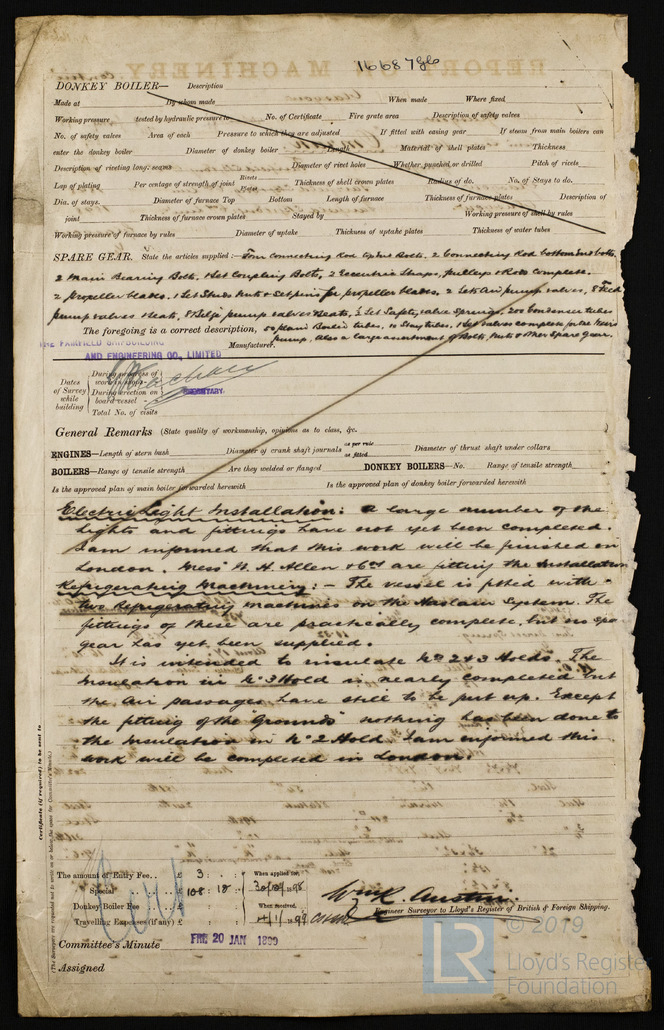 16687 Gls
DONKEY BOILER— Description
Made at By whom made When made Where fixed
Working pressure tested by hydraulic pressure to No. of Certificate Fire grate area Description of safety valves
No. of safety valves Area of each Pressure to which they are adjusted If fitted with easing gear If steam from main boilers can
enter the donkey boiler Diameter of donkey boiler Length Material of shell plates Thickness
Description of riveting long. seams Diameter of rivet holes Whether punched or drilled Pitch of rivets
Lap of plating Per centage of strength of joint Rivets Plates Thickness of shell crown plates Radius of do. No. of Stays to do.
Dia. of stays. Diameter of furnace Top Bottom Length of furnace Thickness of furnace plates Description of
joint Thickness of furnace crown plates Stayed by Working pressure of shell by rules
Working pressure of furnace by rules Diameter of uptake Thickness of uptake plates Thickness of water tubes
SPARE GEAR. State the articles supplied:— Four Connecting Rod top end Bolts. 2 Connecting Rod bottom end bolts,
2 Main Bearing Bolts, 1 Set Coupling Bolts, 2 Eccentric Straps, pulleys & Rods complete.
2 propeller blades. 1 Set Studs nuts & set pins for propeller blades. 2 Sets Air pump valves, 8 Feed
pump valves & seats, 8 Bilge pump valves & seats, Set Safety valve Springs. 200 Condenser tubes
The foregoing is a correct description, 50 plain Boiler tubes, 10 Stay tubes, 1 Set valves complete for
pump, Also a large assortment of Bolts, nuts & other Spare Gear.
THE FAIRFIELD SHIPBUILDING
AND ENGINEERING CO., LIMITED
Manufacturer.
SECRETARY.
Dates of Survey while building
During progress of work in shops--
During erection on board vessel--
Total No. of visits
General Remarks (State quality of workmanship, opinions as to class, &c.
ENGINES—Length of stern bush Diameter of crank shaft journals as per rule as fitted Diameter of thrust shaft under collars
BOILERS—Range of tensile strength Are they welded or flanged DONKEY BOILERS—No. Range of tensile strength
Is the approved plan of main boiler forwarded herewith Is the approved plan of donkey boiler forwarded herewith
Electric Light Installation: A large number of the
lights and fittings have not yet been completed.
I am informed that this work will be finished in
London. Messrs W. H. Allen & Co are fitting the Installation
Refrigerating Machinery:- The vessel is fitted with
two Refrigerating machines on the Haslam System. The
fittings of these are practically complete, but no spare
gear has yet been supplied.
It is intended to insulate Nos 2 & 3 Holds. The
Insulation in No 3 Hold is nearly completed but
the Air passages have still to be put up. Except
the fitting of the "Grounds" nothing has been done to
the Insulation in No 2 Hold. I am informed this
work will be completed in London.
Certificates (if required) to be sent to
(The Surveyors are requested not to write on or below the space for Committee's Minute.)
The amount of Entry Fee.. £ 3 : : When applied for,
Special £ 108 : 18 : 30/12/1898
Donkey Boiler Fee £ : : When received,
Travelling Expenses (if any) £ : : 1899
Wm R. Austin.
Engineer Surveyor to Lloyd's Register of British & Foreign Shipping.
Committee's Minute FRI 20 JAN 1899
Assigned
LR © 2019
Lloyd's Register
Foundation